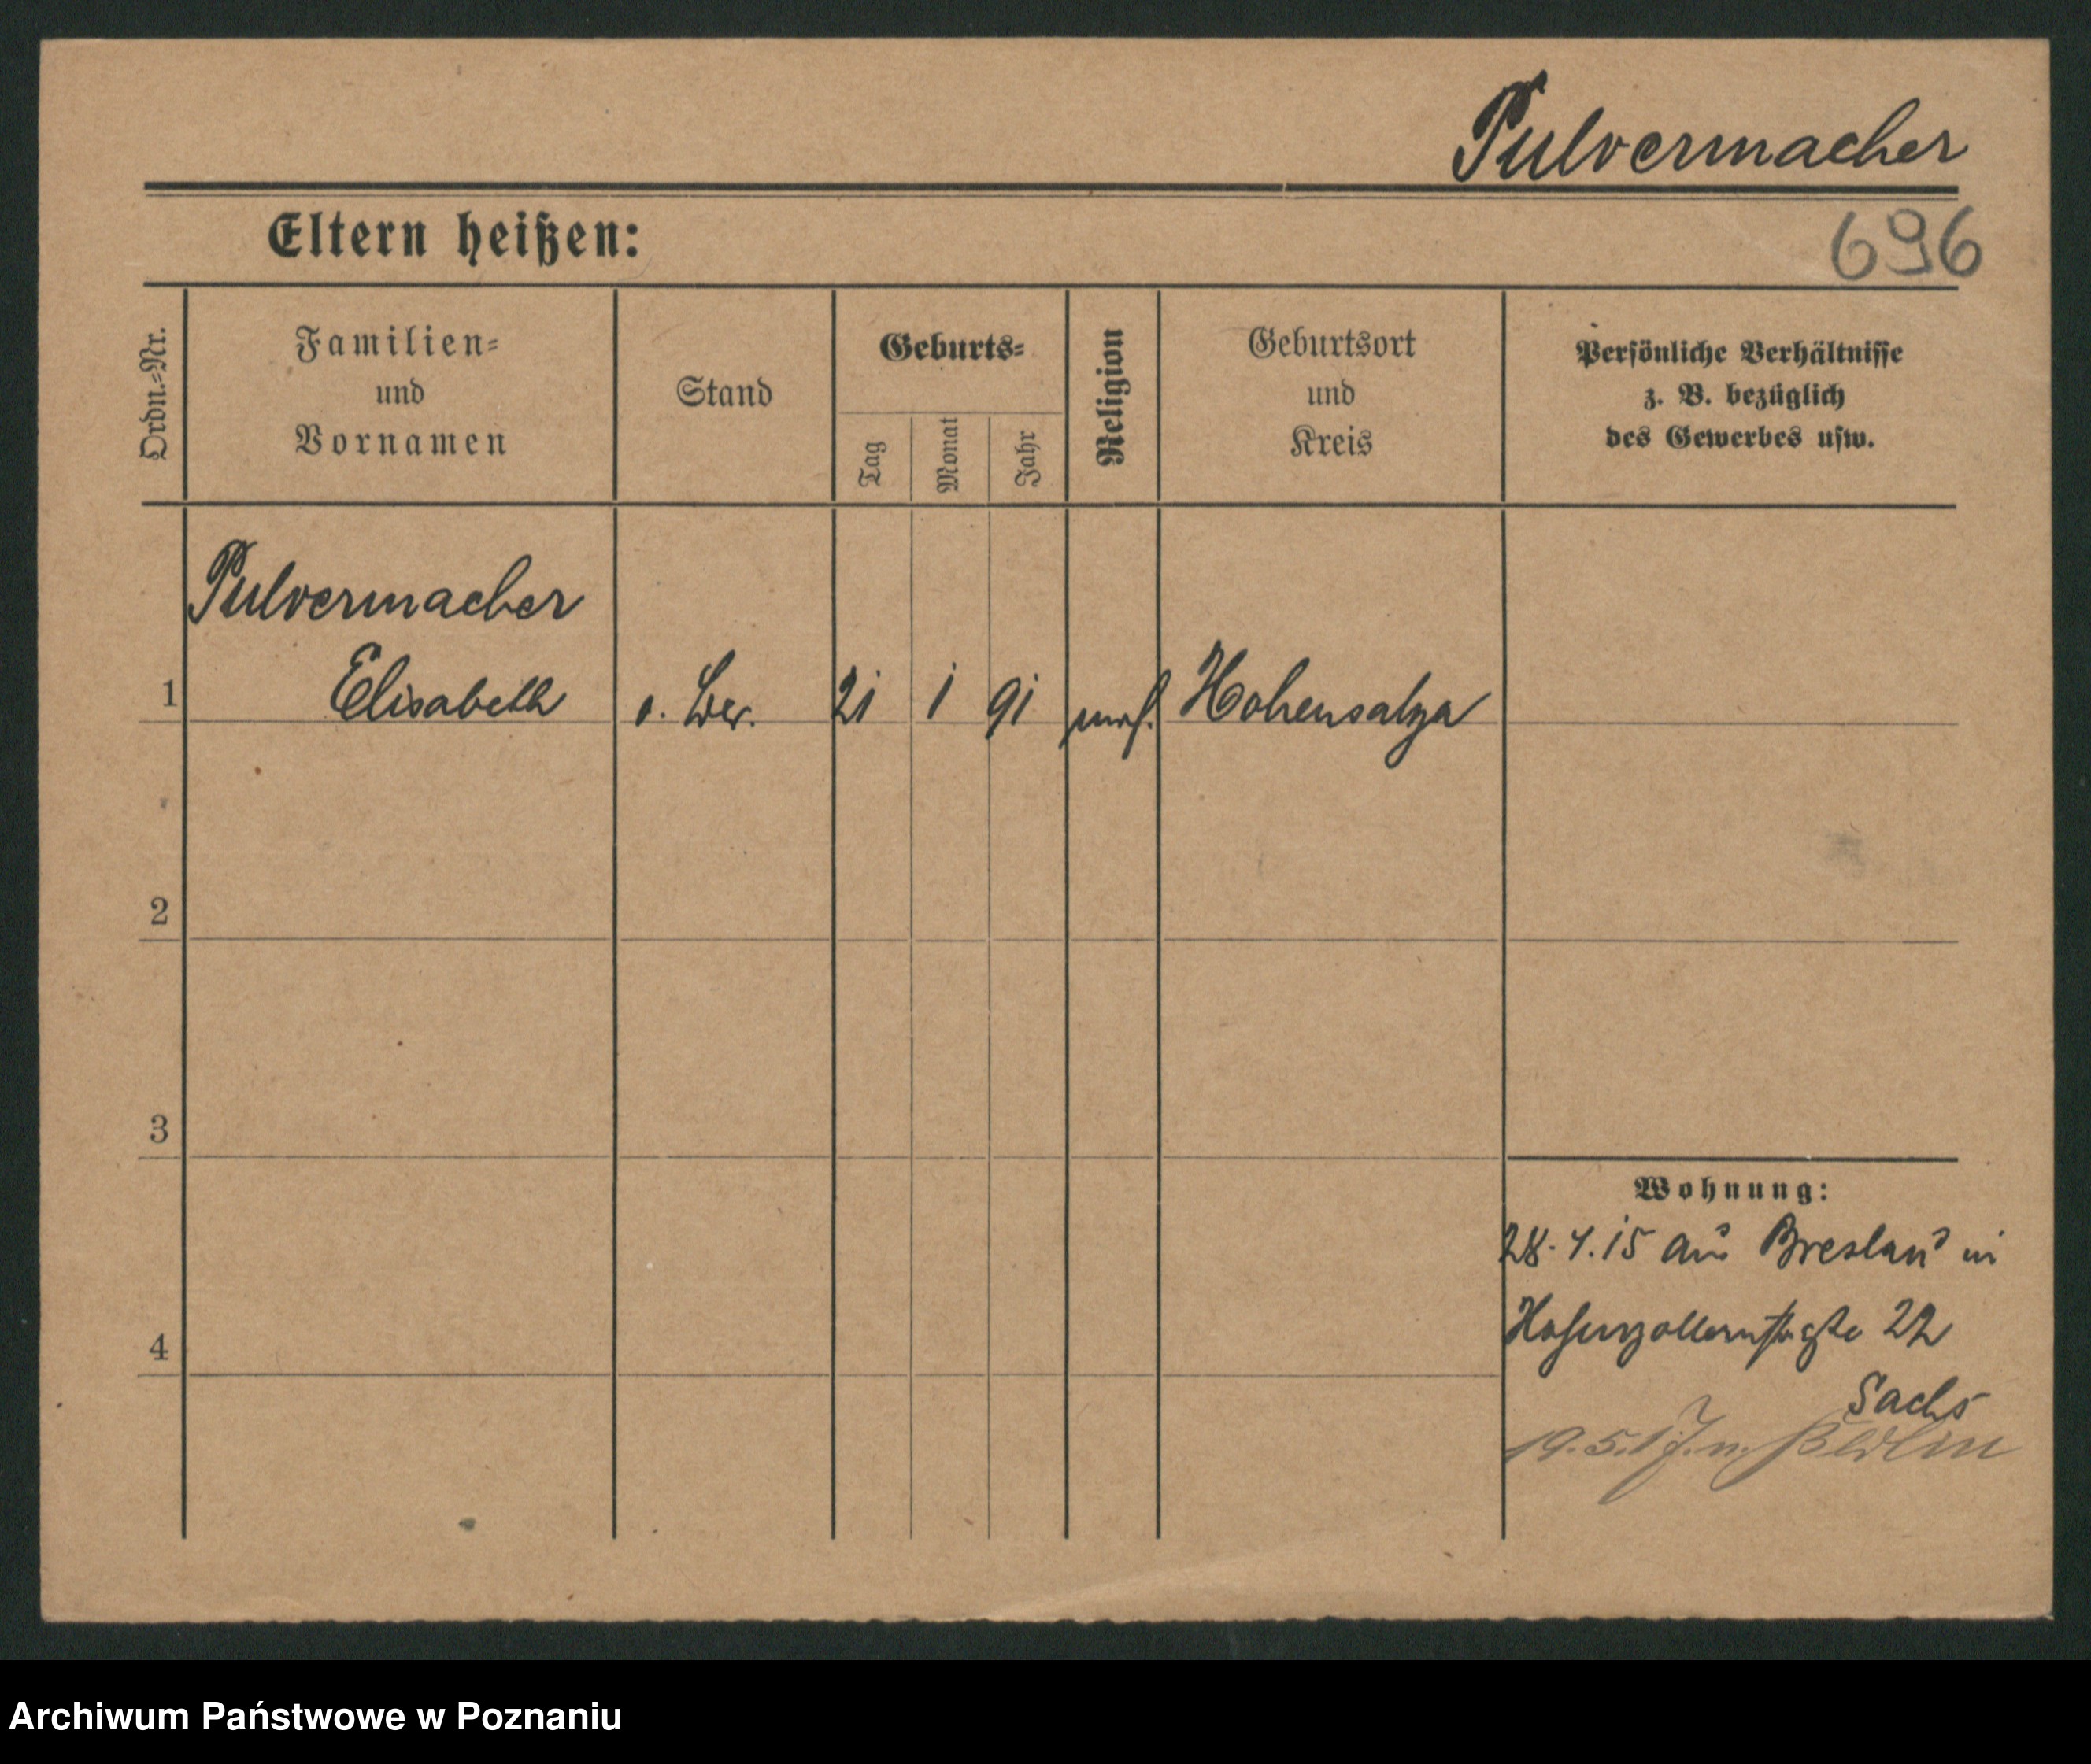 Pulvermacher
Eltern heißen:
696
Ordn.-Nr.
Familien-
und
Vornamen
Stand
Geburts-
Tag
Monat
Jahr
Religion
Geburtsort
und
Kreis
Persönliche Verhältnisse
z. B. bezüglich
des Gewerbes usw.
Pulvermacher
1 Elisabeth 21 1 91 Hohensalza
2
3
4
Wohnung:
28.4.15 aus Breslau in
22
Sachs
19.5.17. n. Berlin
Archiwum Państwowe w Poznaniu